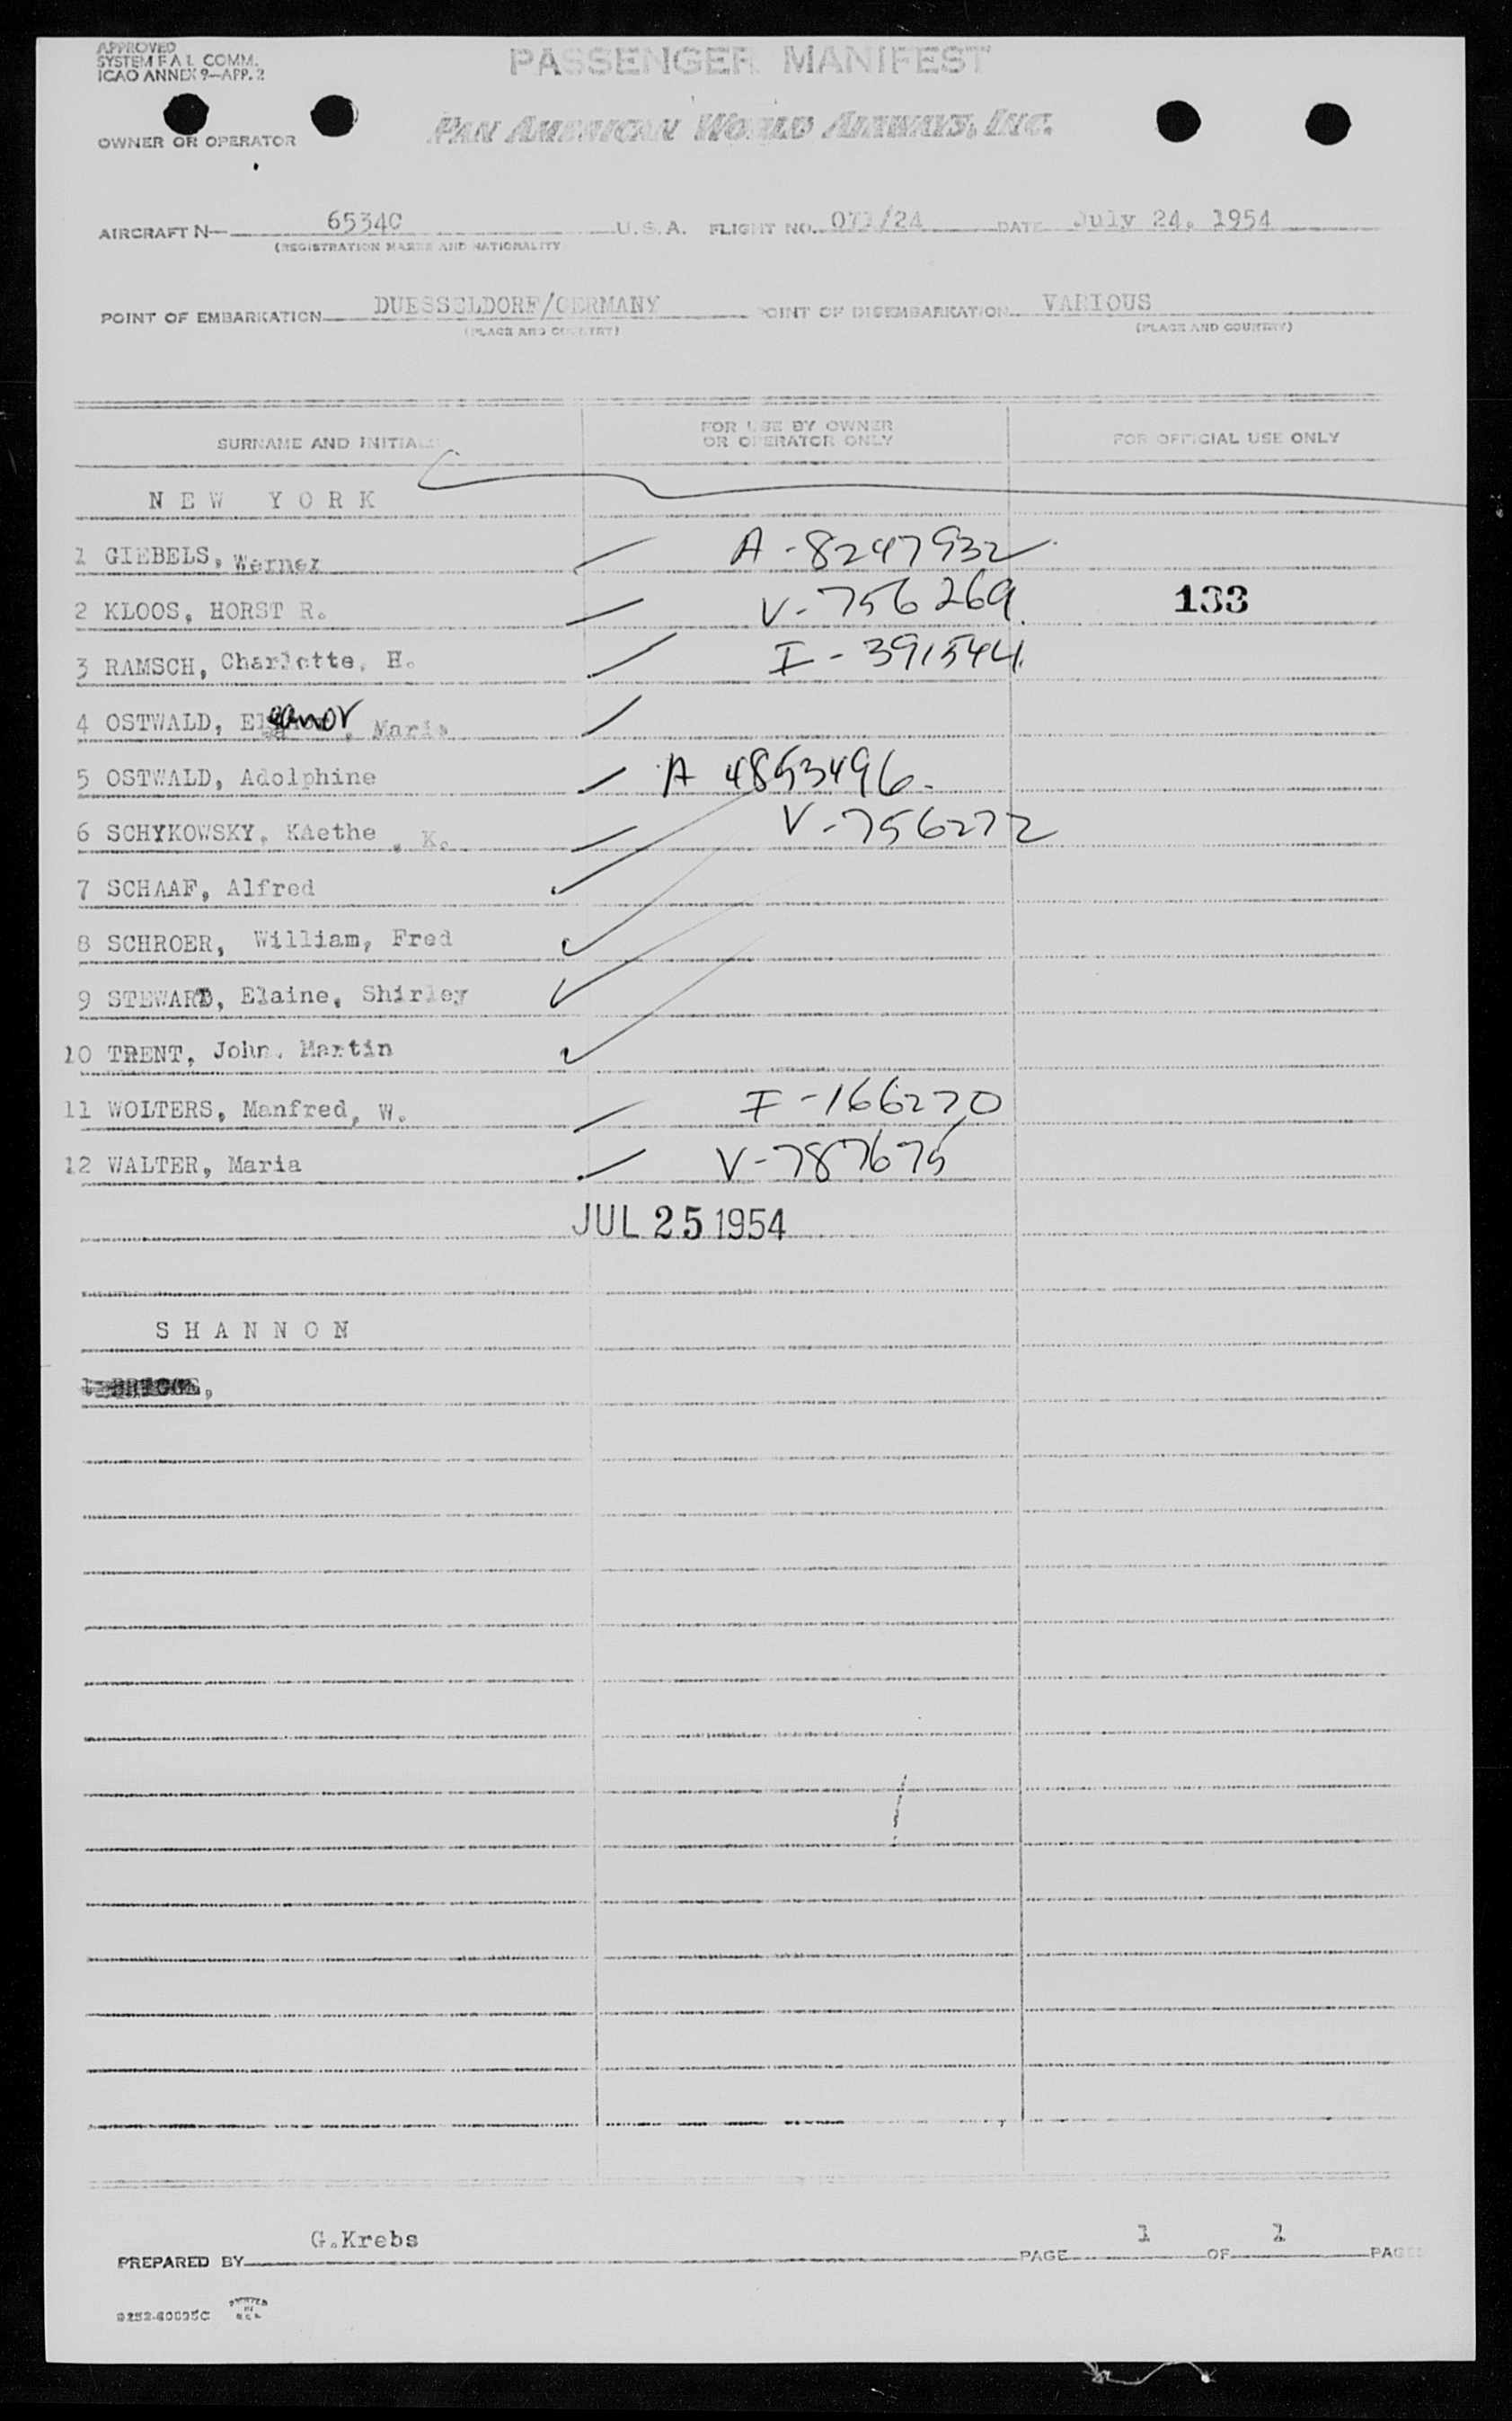 APPROVED
SYSTEM F A L COMM.
ICAO ANNEX 9—APP. 2
PASSENGER MANIFEST
PAN AMERICAN WORLD AIRWAYS, INC.
OWNER OR OPERATOR
AIRCRAFT N— 6534C U.S.A. FLIGHT NO. 071/24 DATE July 24. 1954
(REGISTRATION MARKS AND NATIONALITY
POINT OF EMBARKATION DUESSELDORF/GERMANY POINT OF DISEMBARKATION VARIOUS
(PLACE AND COUNTRY) (PLACE AND COUNTRY)
SURNAME AND INITIALS FOR USE BY OWNER OR OPERATOR ONLY FOR OFFICIAL USE ONLY
NEW YORK
1 GIEBELS, Werner A-8247932
2 KLOOS, HORST R. V-756269 133
3 RAMSCH, Charlotte, H. I-391544
4 OSTWALD, Eleanor, Maria
5 OSTWALD, Adolphine A 4853496
6 SCHYKOWSKY, KAethe, K. V-756272
7 SCHAAF, Alfred
8 SCHROER, William, Fred
9 STEWARD, Elaine, Shirley
10 TRENT, John, Martin
11 WOLTERS, Manfred, W. I-166270
12 WALTER, Maria V-787675
JUL 25 1954
SHANNON
PREPARED BY G.Krebs PAGE 1 OF 1 PAGES
PRINTED IN U.S.A.